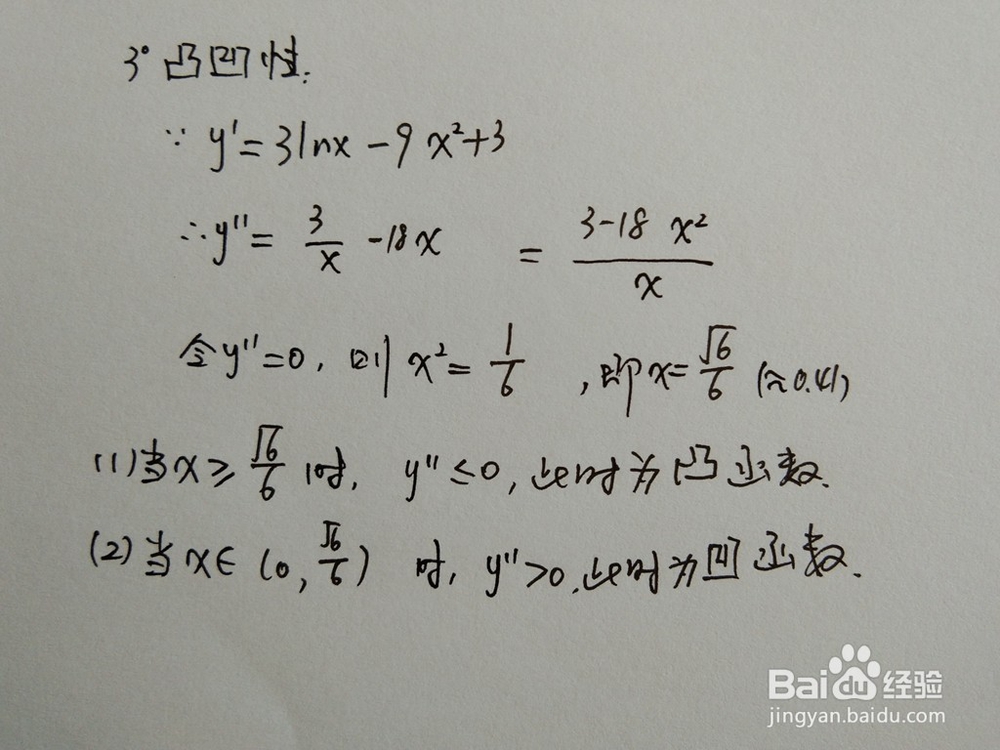 3° 凸凹性:
∵ y' = 3lnx - 9x²+3
∴ y'' = 3/x - 18x = (3-18x²)/x
令y''=0, 则 x² = 1/6, 即x = √6/6 (≈0.41)
(1) 当x ≥ √6/6 时, y'' ≤ 0, 此时为凸函数.
(2) 当x∈(0, √6/6) 时, y''>0, 此时为凹函数.
Baidu经验
jingyan.baidu.com